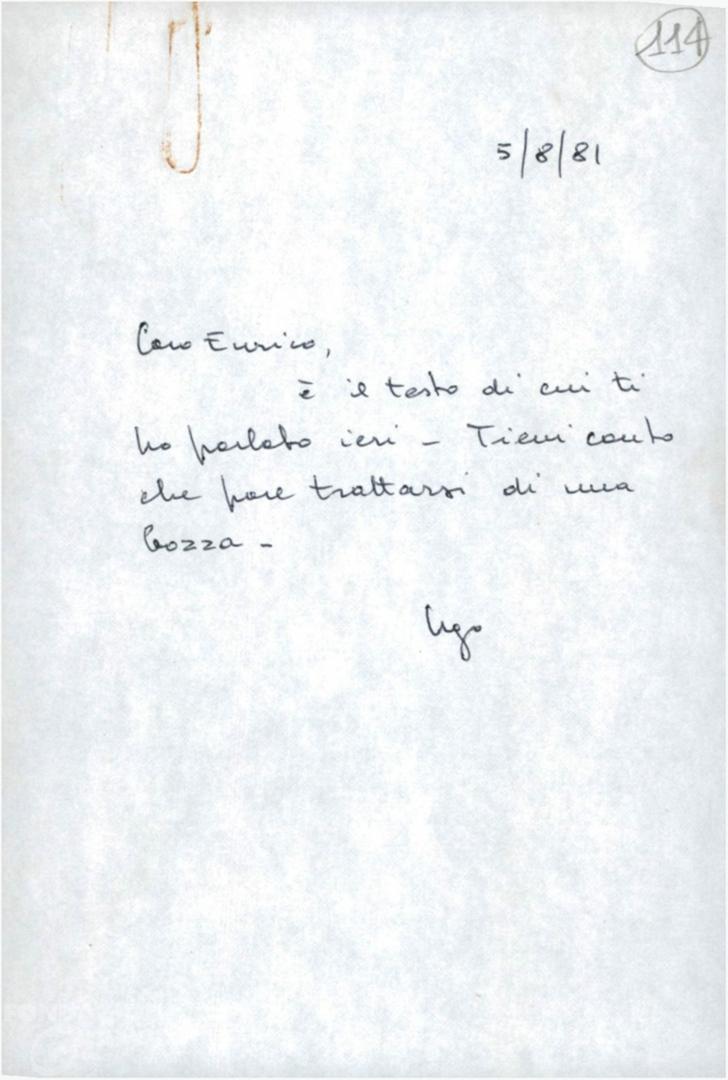 114
5/8/81
Caro Enrico,
è il testo di cui ti
ho parlato ieri - Tieni conto
che pare trattarsi di una
bozza -
Ugo